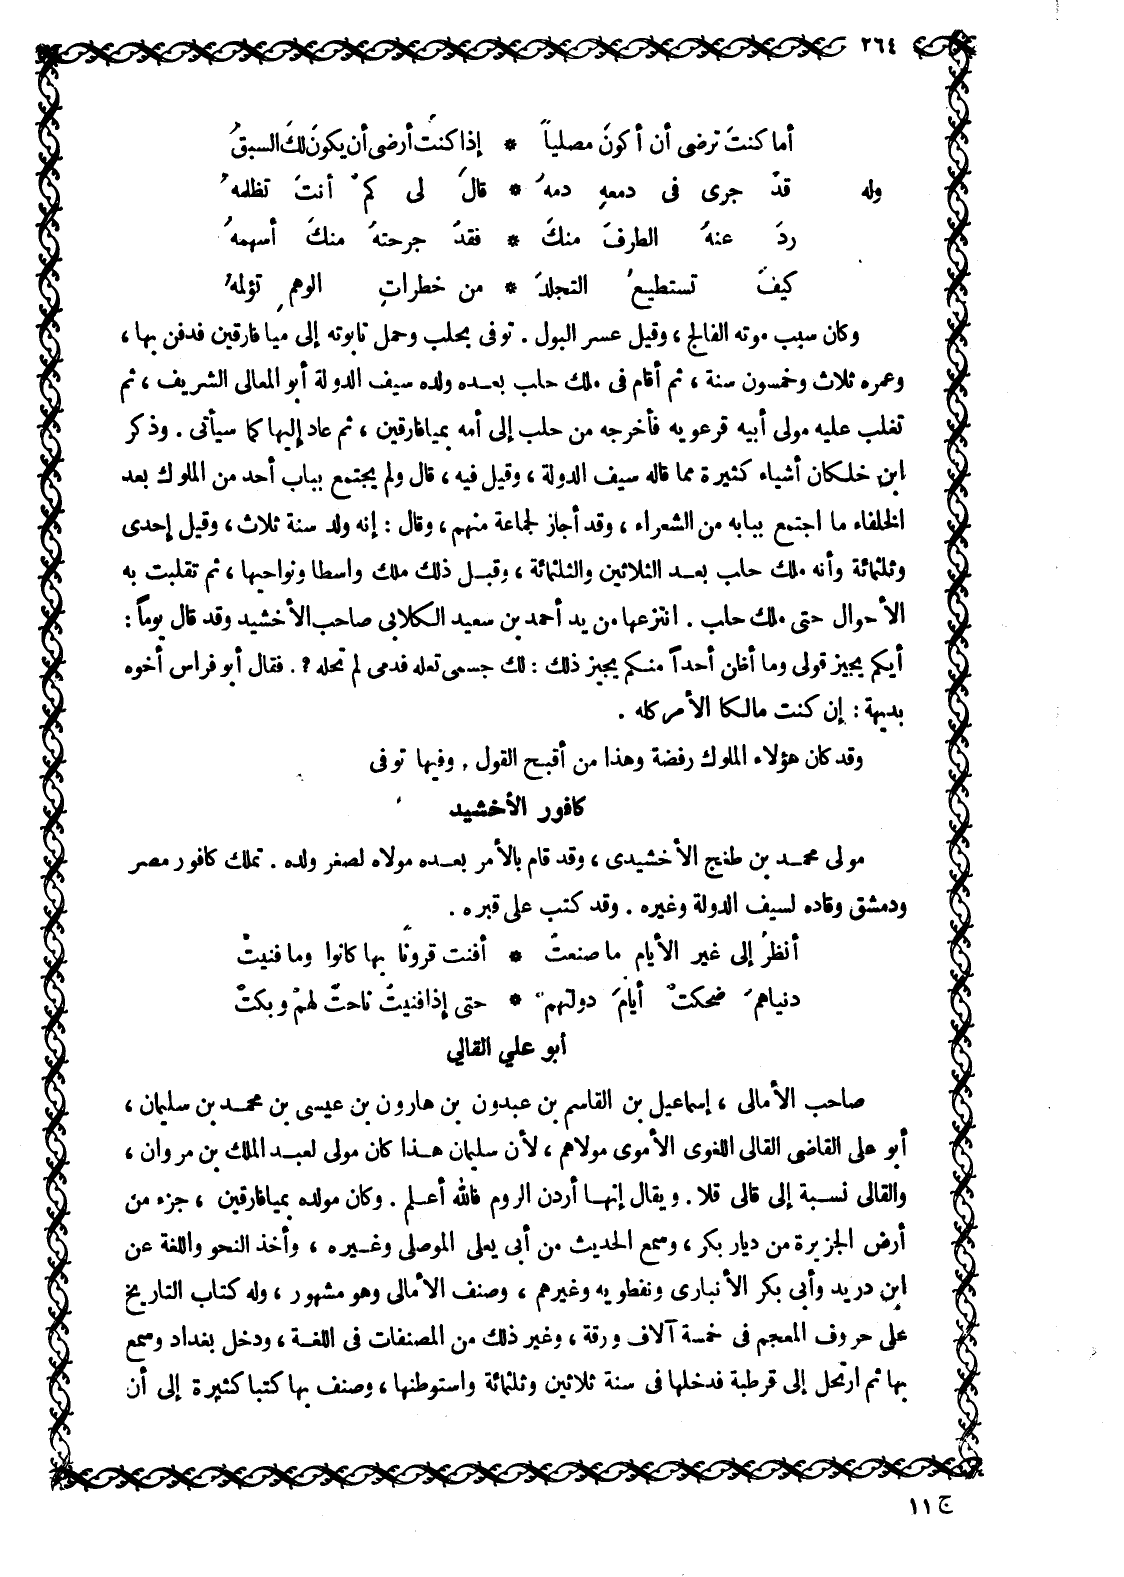 ٢٦٤
أما كنتَ ترضى أن أكونَ مصلياً * إذا كنتُ أرضى أن يكونَ لكَ السبقُ
وله قدْ جرى فى دمعهِ دمهُ * قالَ لى كمْ أنتَ تظلمهُ
ردَ عنهُ الطرفَ منكَ * فقدْ جرحتهُ منكَ أسهمهُ
كيفَ تستطيعُ التجلدَ * من خطراتِ الوهمِ تؤلمهُ
وكان سبب موته الفالج ، وقيل عسر البول . توفى بحلب وحمل تابوته إلى ميافارقين فدفن بها ،
وعمره ثلاث وخمسون سنة ، ثم أقام فى ملك حلب بعده ولده سيف الدولة أبو المعالى الشريف ، ثم
تغلب عليه مولى أبيه قرعويه فأخرجه من حلب إلى أمه بميافارقين ، ثم عاد إليها كما سيأتى . وذكر
ابن خلكان أشياء كثيرة مما قاله سيف الدولة ، وقيل فيه ، قال ولم يجتمع بباب أحد من الملوك بعد
الخلفاء ما اجتمع ببابه من الشعراء ، وقد أجاز لجماعة منهم ، وقال : إنه ولد سنة ثلاث ، وقيل إحدى
وثلثمائة وأنه ملك حلب بعد الثلاثين والثلثمائة ، وقبل ذلك ملك واسطا ونواحيها ، ثم تقلبت به
الأحوال حتى ملك حلب . انتزعها من يد أحمد بن سعيد الكلابى صاحب الأخشيد وقد قال يوماً :
أيكم يجيز قولى وما أظن أحداً منكم يجيز ذلك : لك جسمى تعله فدمى لم تحله ؟ . فقال أبو فراس أخوه
بديهة : إن كنت مالكا الأمر كله .
وقد كان هؤلاء الملوك رفضة وهذا من أقبح القول . وفيها توفى
كافور الأخشيد
مولى محمد بن طغج الأخشيدى ، وقد قام بالأمر بعده مولاه لصغر ولده . تملك كافور مصر
ودمشق وقاده لسيف الدولة وغيره . وقد كتب على قبره .
أنظرْ إلى غير الأيام ما صنعتْ * أفنت قرونًا بها كانوا وما فنيتْ
دنياهمَ ضحكتْ أيامَ دولتهمْ * حتى إذا فنيتْ ناحتْ لهمْ وبكتْ
أبو علي القالي
صاحب الأمالى ، إسماعيل بن القاسم بن عبدون بن هارون بن عيسى بن محمد بن سليمان ،
أبو على القاضى القالى اللغوى الأموى مولاهم ، لأن سليمان هذا كان مولى لعبد الملك بن مروان ،
والقالى نسبة إلى قالى قلا . ويقال إنها أردن الروم فالله أعلم . وكان مولده بميافارقين ، جزء من
أرض الجزيرة من ديار بكر ، وسمع الحديث من أبى يعلى الموصلى وغيره ، وأخذ النحو واللغة عن
ابن دريد وأبى بكر الأنبارى ونفطويه وغيرهم ، وصنف الأمالى وهو مشهور ، وله كتاب التاريخ
على حروف المعجم فى خمسة آلاف ورقة ، وغير ذلك من المصنفات فى اللغة ، ودخل بغداد وسمع
بها ثم ارتحل إلى قرطبة فدخلها فى سنة ثلاثين وثلثمائة واستوطنها ، وصنف بها كتبا كثيرة إلى أن
ج ١١